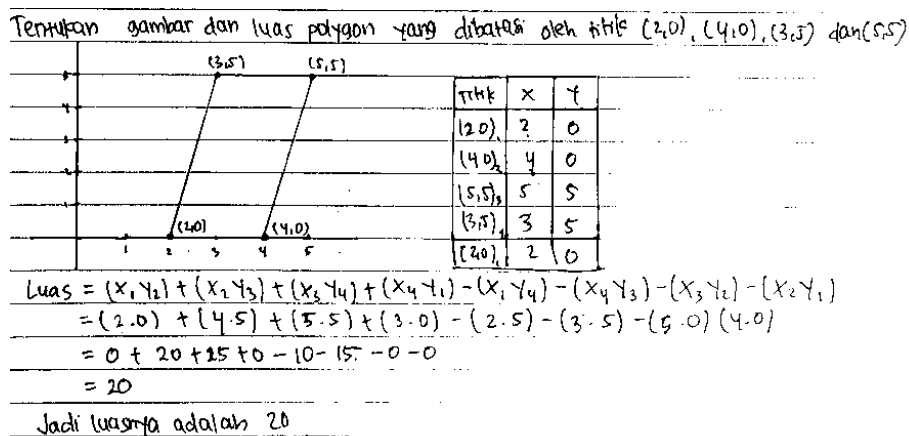 Tentukan gambar dan luas polygon yang dibatasi oleh titik (2,0), (4,0), (3,5) dan (5,5)
(3,5) (5,5)
5
4
3
2
1
(2,0) (4,0)
1 2 3 4 5
Titik X Y
(2 0)1 2 0
(4 0)2 4 0
(5,5)3 5 5
(3,5)4 3 5
(2,0)1 2 0
Luas = (X1 Y2) + (X2 Y3) + (X3 Y4) + (X4 Y1) - (X1 Y4) - (X4 Y3) - (X3 Y2) - (X2 Y1)
= (2.0) + (4.5) + (5.5) + (3.0) - (2.5) - (3.5) - (5.0) (4.0)
= 0 + 20 + 25 + 0 - 10 - 15 - 0 - 0
= 20
Jadi luasnya adalah 20